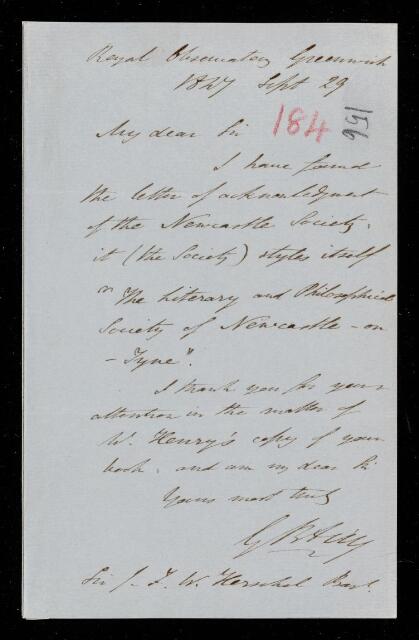 Royal Observatory Greenwich
1847 Sept 29
184
156
My dear Sir
I have found
the letter of acknowledgment
of the Newcastle Society.
it (the Society) styles itself
"The Literary and Philosophical
Society of Newcastle-on
-Tyne".
I thank you for your
attention in the matter of
W. Henry's copy of your
book, and am my dear Sir
Yours most truly
G B Airy
Sir J. F. W. Herschel Bart.